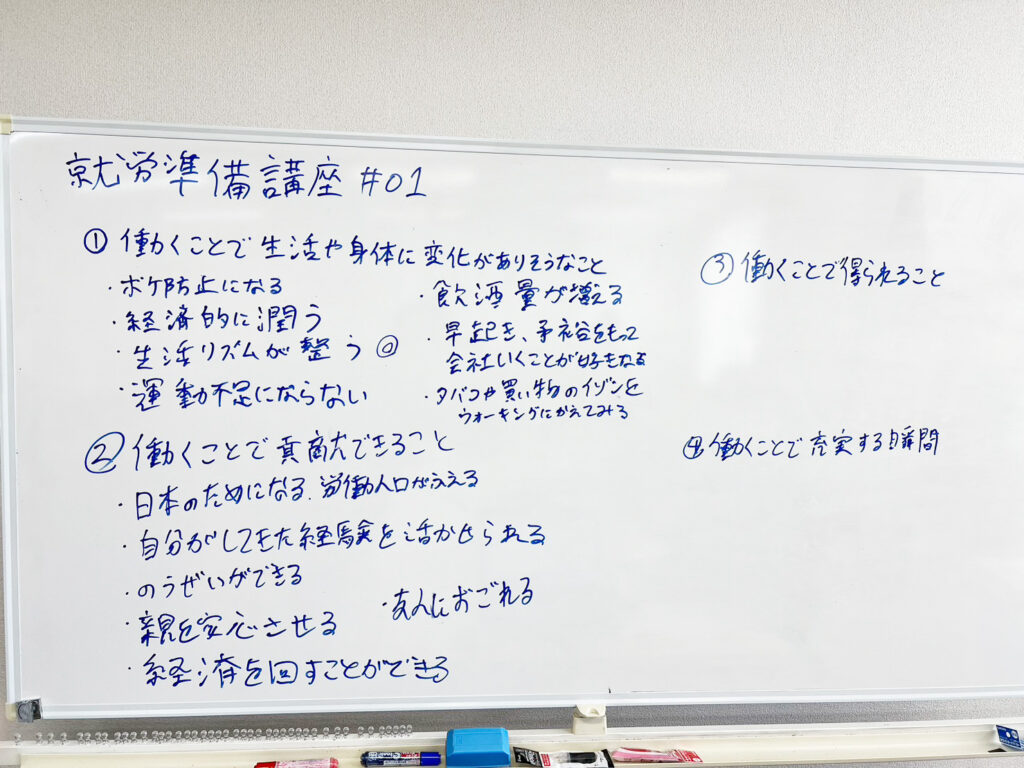 就労準備講座 #01
① 働くことで生活や身体に変化がありそうなこと
・ボケ防止になる
・経済的に潤う
・生活リズムが整う◎
・運動不足にならない
・飲酒量が増える
・早起き、予裕をもって
会社いくことが好きなる
・タバコや買い物のイゾンを
ウォーキングにかえてみる
② 働くことで貢献できること
・日本のためになる、労働人口がふえる
・自分がしてきた経験を活かせられる
・のうぜいができる
・親を安心させる
・友人におごれる
・経済を回すことができる
③ 働くことで得られること
④ 働くことで充実する瞬間